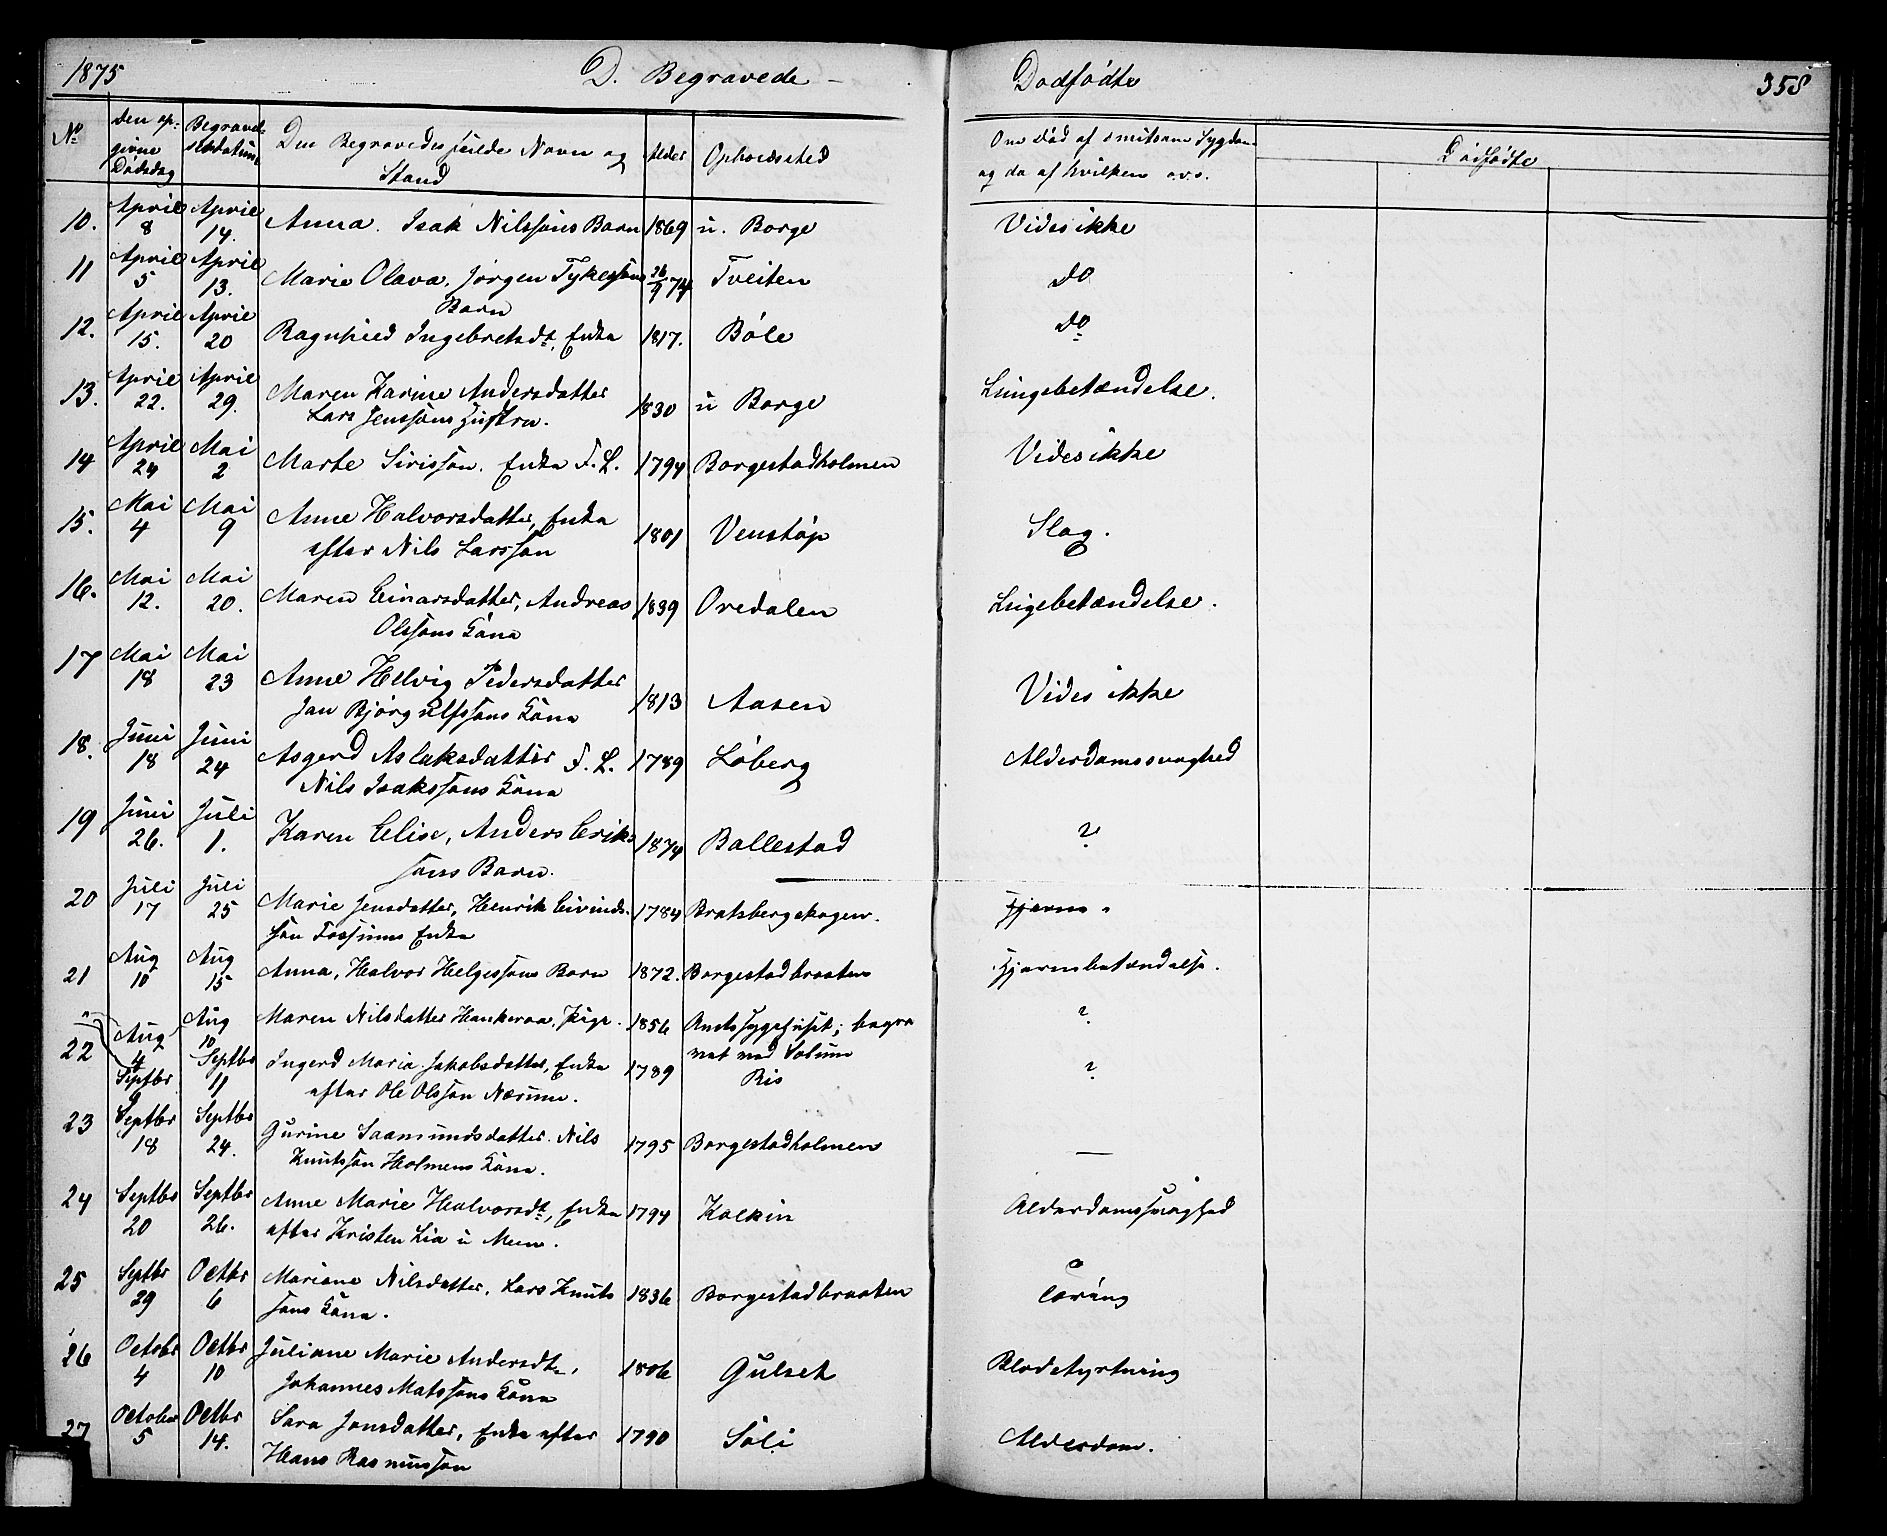 1875 D. Begravede - Dødfødte 358
No Den op- Begravel- Den Begravedes fulde Navn og Alder Opholdssted Om Død af smitsom Sygdom Dødfødte
givne sesdatum Stand og da af hvilken o.v.s.
Dødsdag
10. April 8 April 14. Anna. Isak Nilssøns Barn 1869 u. Borge Vides ikke
11 April 5 April 13. Marie Olava. Jørgen Tykessøns 26/9 74 Tveiten do
Barn
12. April 15. April 20 Ragnhild Ingebretsdt. Enke 1817. Bøle do
13. April 22. April 29. Maren Karine Andersdatter 1830 u Borge Lungebetændelse.
Lars Jenssøns Hustru.
14 April 24 Mai 2 Marte Sirisson. Enke F. L. 1794 Borgestadholmen Vides ikke
15. Mai 4 Mai 9 Anne Halvorsdatter, Enke 1801 Venstøp Slag.
efter Nils Larssøn
16. Mai 12. Mai 20. Maren Einarsdatter, Andreas 1839 Oredalen Lugebetændelse.
Olssøns Kone
17 Mai 18 Mai 23 Anne Helvig Pedersdatter 1813 Aasen Vides ikke
Jan Bjørgulfssøns Kone
18. Juni 18 Juni 24 Asgerd Aslaksdatter F. L. 1789 Løberg Alderdomssvaghed
Nils Isakssøns Kone
19 Juni 26. Juli 1. Karen Elise, Anders Eriks 1874 Ballestad ?
søns Barn.
20 Juli 17 Juli 25 Marie Jensdatter, Henrik Eivinds- 1784 Bratsbergskogen. Hjerne.
søn Fossums Enke
21 Aug 10 Aug 15 Anna, Halvor Helgessøns Barn 1872. Borgestadbraaten Hjernebetændelse.
" Aug 4 Aug 10 Maren Nilsdatter Hankeraa, Pige. 1856 Amtssygehuset; begra ?
vet ved Solum
22 Septbr 9 Septbr 11 Ingerd Maria Jakobsdatter, Enke 1789 Ris ?
efter Ole Olssøn Nærum.
23 Septbr 18 Septbr 24. Gurine Saamundsdatter. Nils 1795 Borgestadholmen —
Knutssøn Holmens Kone.
24 Septbr 20 Septbr 26. Anne Marie Halvorsdt., Enke 1794 Kleiven Alderdomssvaghed
efter Kristen Lia u Mem.
25 Septbr 29 Octbr 6 Mariane Nilsdatter. Lars Knuts 1836 Borgestadbraaten Tæring
søns Kone.
26 Octobr 4 Octbr 10 Juliane Marie Andersdt., 1806 Gulset Blodstyrtning
Johannes Matssøns Kone
27 October 5 Octbr 14. Sara Jonsdatter, Enke efter 1790 Søli Alderdom.
Hans Rasmussøn